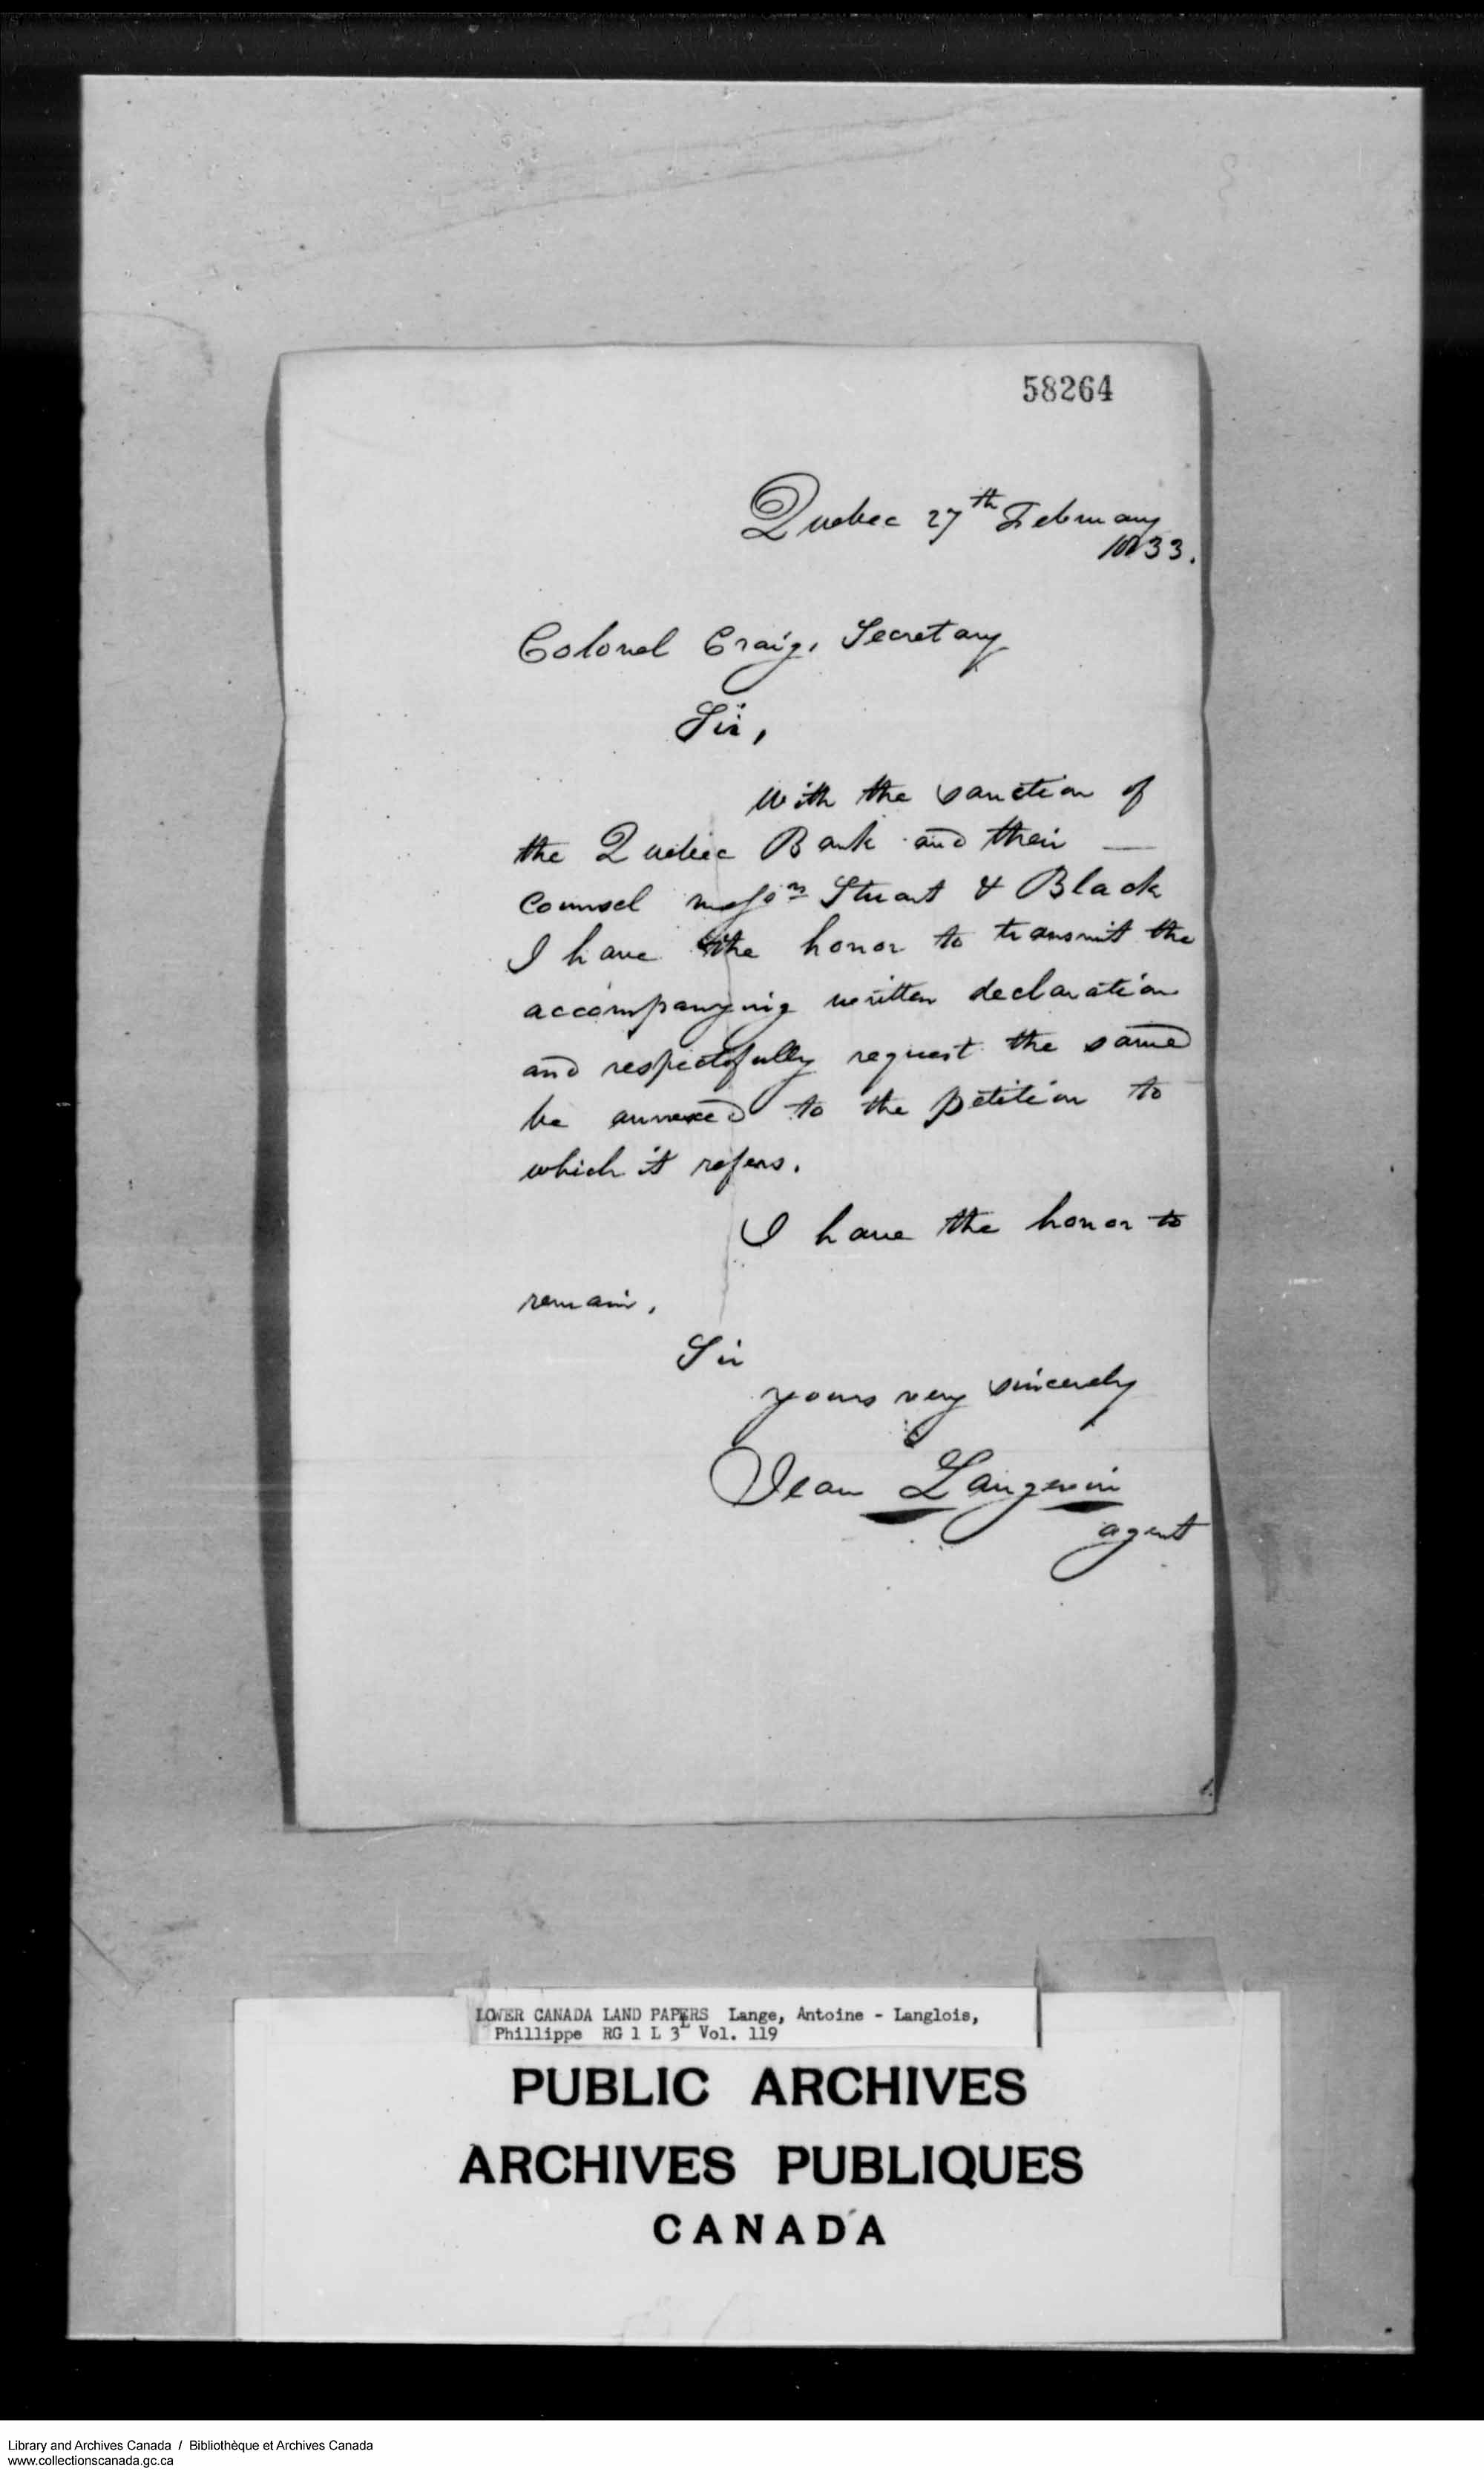 58264
Quebec 27th February
1833.
Colonel Craig, Secretary
Sir,
With the sanction of
the Quebec Bank and their —
Counsel Messrs Stuart & Black
I have the honor to transmit the
accompanying written declaration
and respectfully request the same
be annexed to the petition to
which it refers.
I have the honor to
remain,
Sir
yours very sincerely
Jean Langevin
agent
LOWER CANADA LAND PAPERS Lange, Antoine - Langlois,
Phillippe RG 1 L 3L Vol. 119
PUBLIC ARCHIVES
ARCHIVES PUBLIQUES
CANADA
Library and Archives Canada / Bibliothèque et Archives Canada
www.collectionscanada.gc.ca